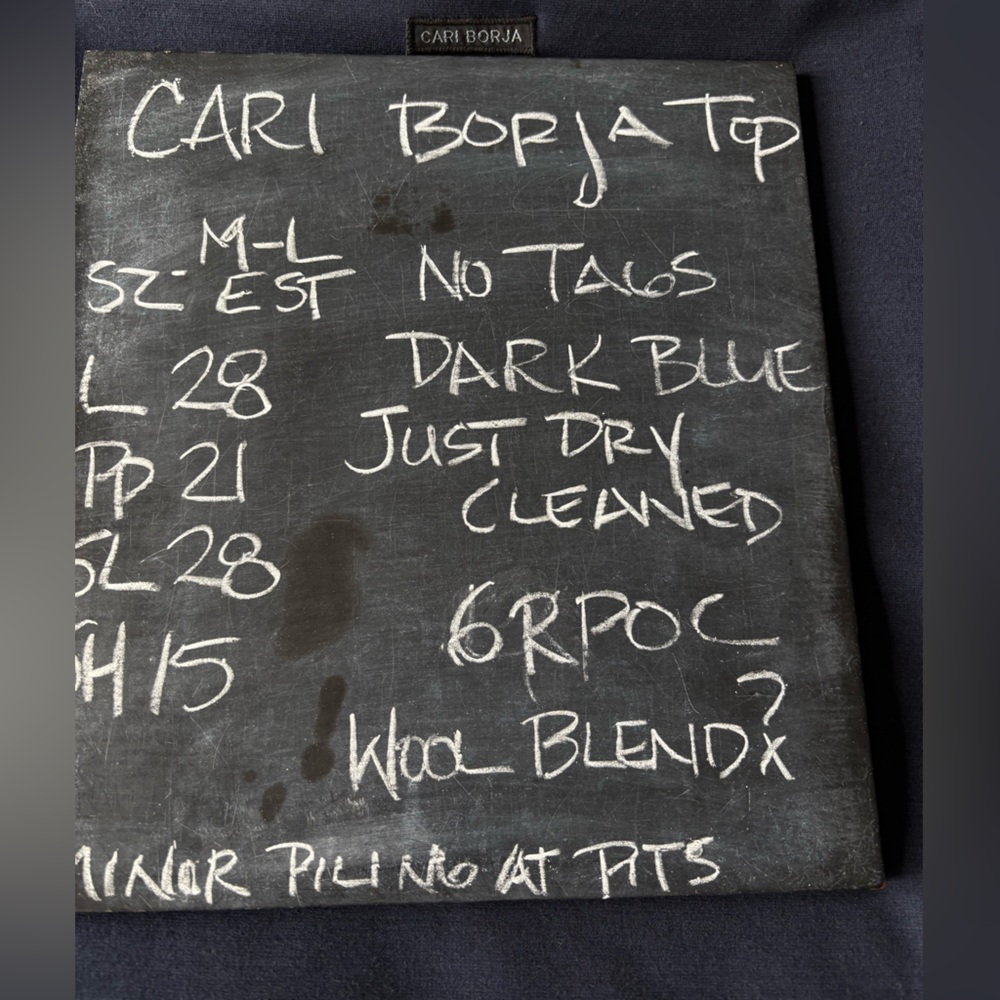 CARI BORJA
CARI BORJA TOP
SZ- M-L EST
NO TAGS
L 28
DARK BLUE
PP 21
JUST DRY
CLEANED
SL 28
SH 15
6RPOC
WOOL BLEND?
MINOR PILING AT PITS